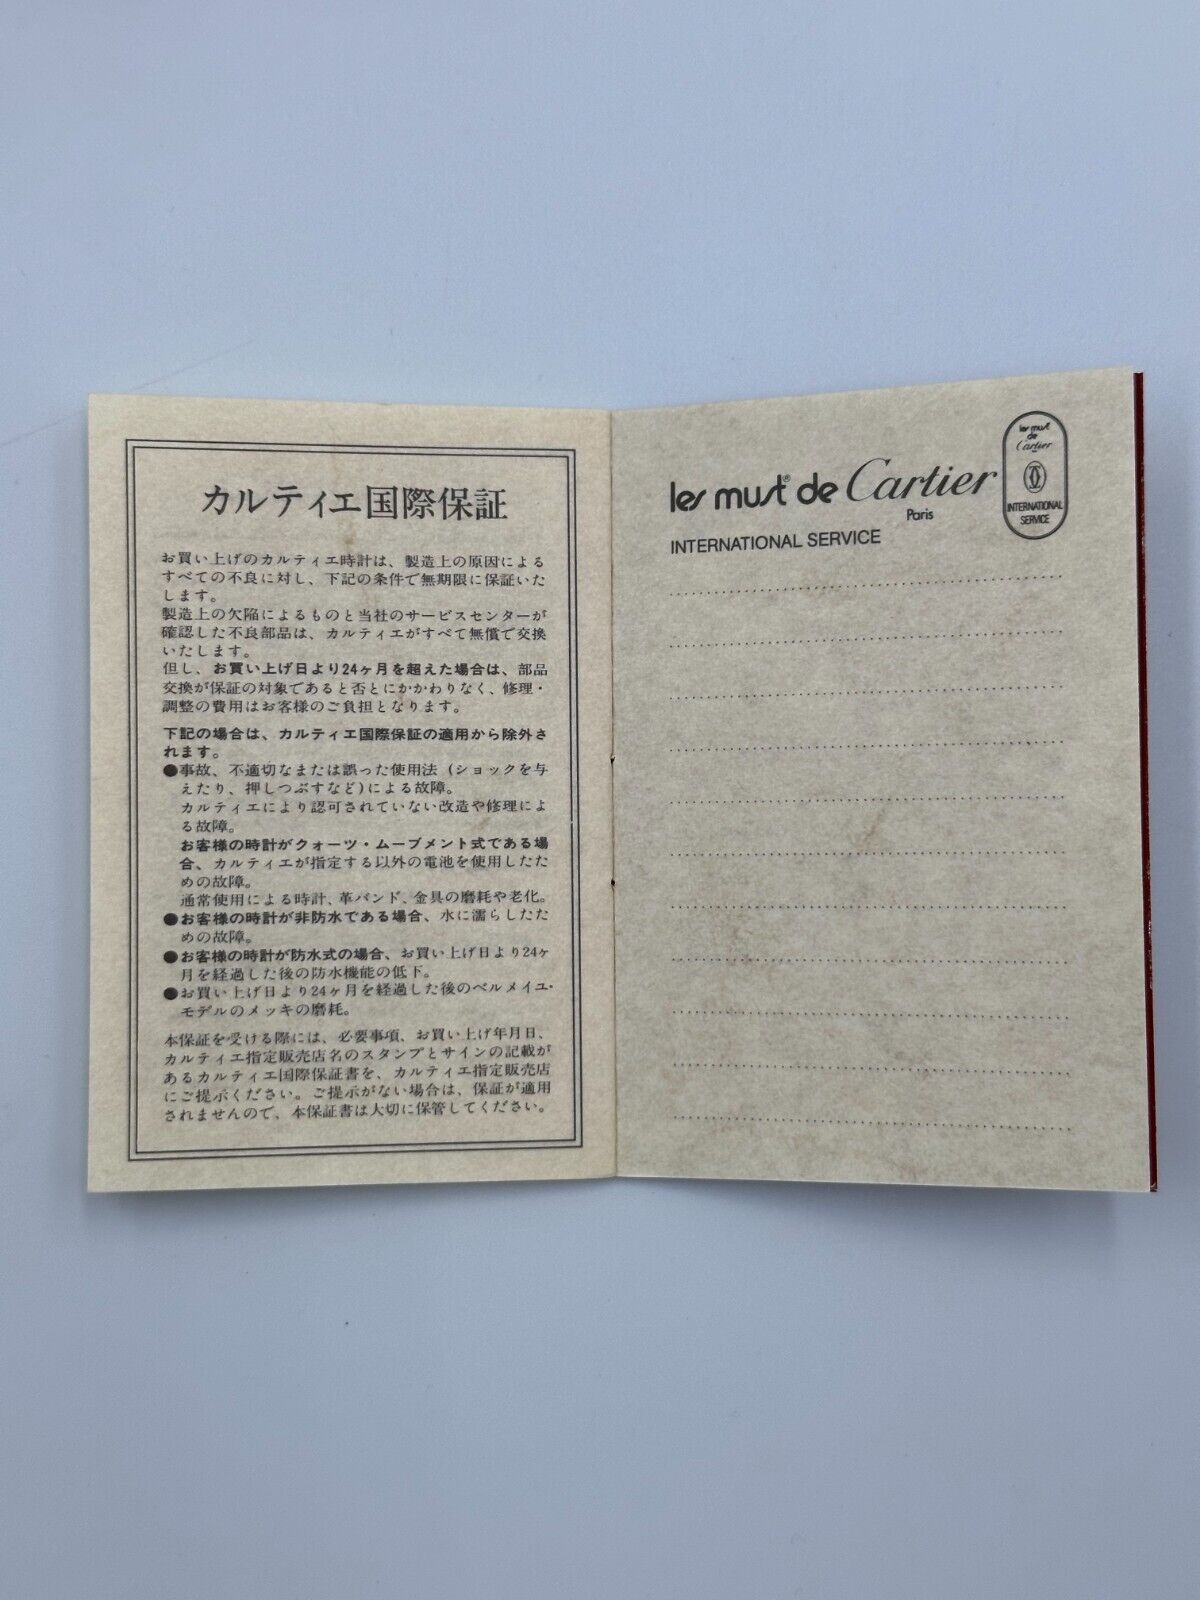 カルティエ国際保証
お買い上げのカルティエ時計は、製造上の原因による
すべての不良に対し、下記の条件で無期限に保証いた
します。
製造上の欠陥によるものと当社のサービスセンターが
確認した不良部品は、カルティエがすべて無償で交換
いたします。
但し、お買い上げ日より24ヶ月を超えた場合は、部品
交換が保証の対象であると否とにかかわりなく、修理・
調整の費用はお客様のご負担となります。
下記の場合は、カルティエ国際保証の適用から除外さ
れます。
●事故、不適切なまたは誤った使用法(ショックを与
えたり、押しつぶすなど)による故障。
カルティエにより認可されていない改造や修理によ
る故障。
お客様の時計がクォーツ・ムーブメント式である場
合、カルティエが指定する以外の電池を使用したた
めの故障。
通常使用による時計、革バンド、金具の磨耗や老化。
●お客様の時計が非防水である場合、水に濡らしたた
めの故障。
●お客様の時計が防水式の場合、お買い上げ日より24ヶ
月を経過した後の防水機能の低下。
●お買い上げ日より24ヶ月を経過した後のベルメイユ・
モデルのメッキの磨耗。
本保証を受ける際には、必要事項、お買い上げ年月日、
カルティエ指定販売店名のスタンプとサインの記載が
あるカルティエ国際保証書を、カルティエ指定販売店
にご提示ください。ご提示がない場合は、保証が適用
されませんので、本保証書は大切に保管してください。
les must® de Cartier
Paris
INTERNATIONAL SERVICE
les must
de
Cartier
INTERNATIONAL
SERVICE